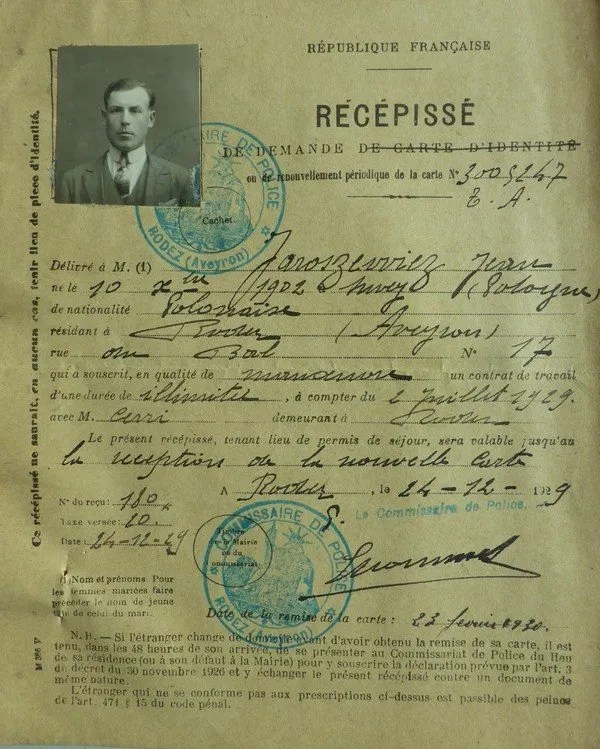 RÉPUBLIQUE FRANÇAISE
RÉCÉPISSÉ
DE DEMANDE DE CARTE D'IDENTITÉ
ou de renouvellement périodique de la carte N° 3009247
T. A.
COMMISSAIRE DE POLICE
RODEZ (Aveyron)
Cachet
Délivré à M. (1) Jaroszewiez Jean
né le 10 Xbre 1902 à (Pologne)
de nationalité Polonaise
résidant à Rodez (Aveyron)
rue du Bal N° 17
qui a souscrit, en qualité de manœuvre un contrat de travail
d'une durée de illimitée, à compter du 2 Juillet 1929.
avec M. Cerri demeurant à Rodez
Le présent récépissé, tenant lieu de permis de séjour, sera valable jusqu'au
la réception de la nouvelle carte
A Rodez, le 24-12-1929
Le Commissaire de Police,
N° du reçu: 180
Taxe versée: 20.
Date: 24-12-29
Timbre
de la Mairie
ou du
Commissariat
COMMISSAIRE DE POLICE
RODEZ (Aveyron)
(1) Nom et prénoms Pour
les femmes mariées faire
précéder le nom de jeune
fille de celui du mari.
Date de la remise de la carte: 23 février 1930.
N. B. — Si l'étranger change de domicile avant d'avoir obtenu la remise de sa carte, il est
tenu, dans les 48 heures de son arrivée, de se présenter au Commissariat de Police du lieu
de sa résidence (ou à son défaut à la Mairie) pour y souscrire la déclaration prévue par l'art. 3
du décret du 30 novembre 1926 et y échanger le présent récépissé contre un document de
même nature.
L'étranger qui ne se conforme pas aux prescriptions ci-dessus est passible des peines
de l'art. 471 § 15 du code pénal.
Ce récépissé ne saurait, en aucun cas, tenir lieu de pièce d'identité.